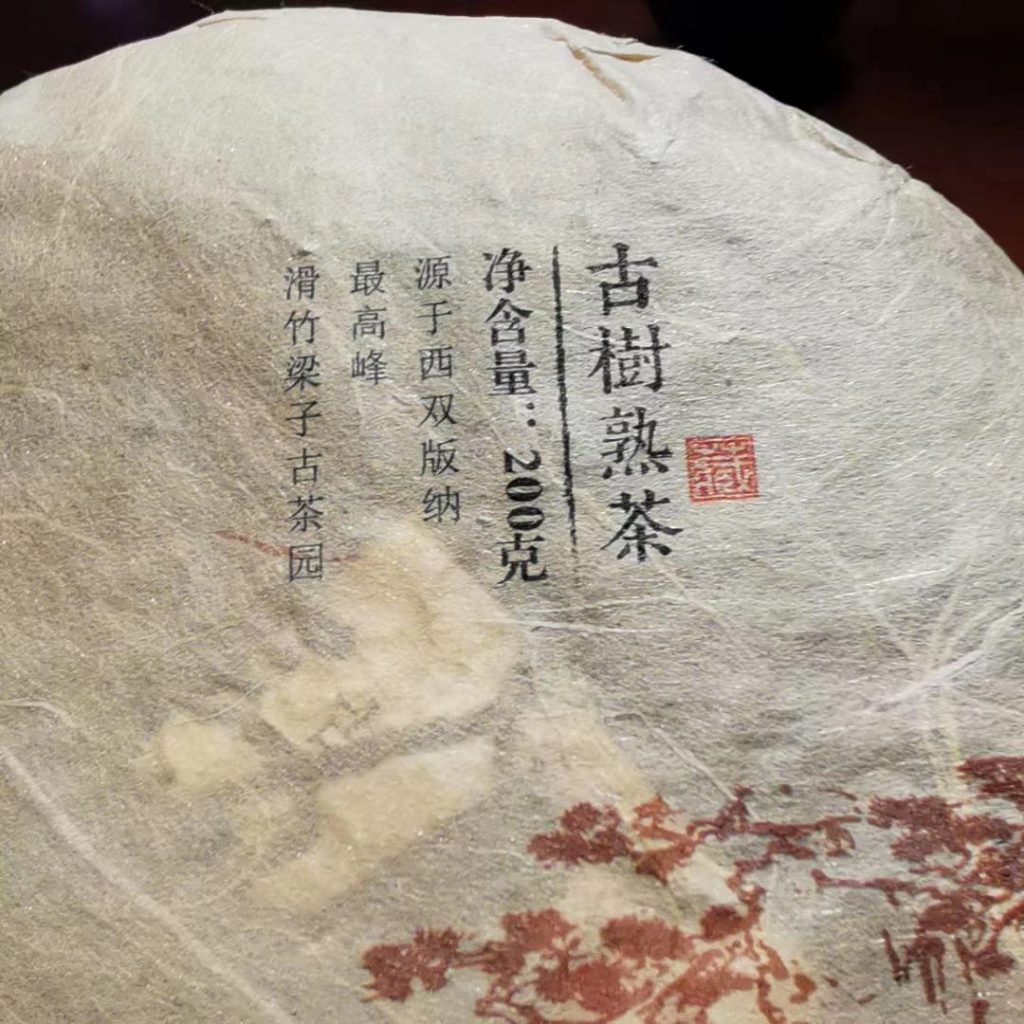 藏
古樹熟茶
净含量：200克
源于西双版纳
最高峰
滑竹梁子古茶园